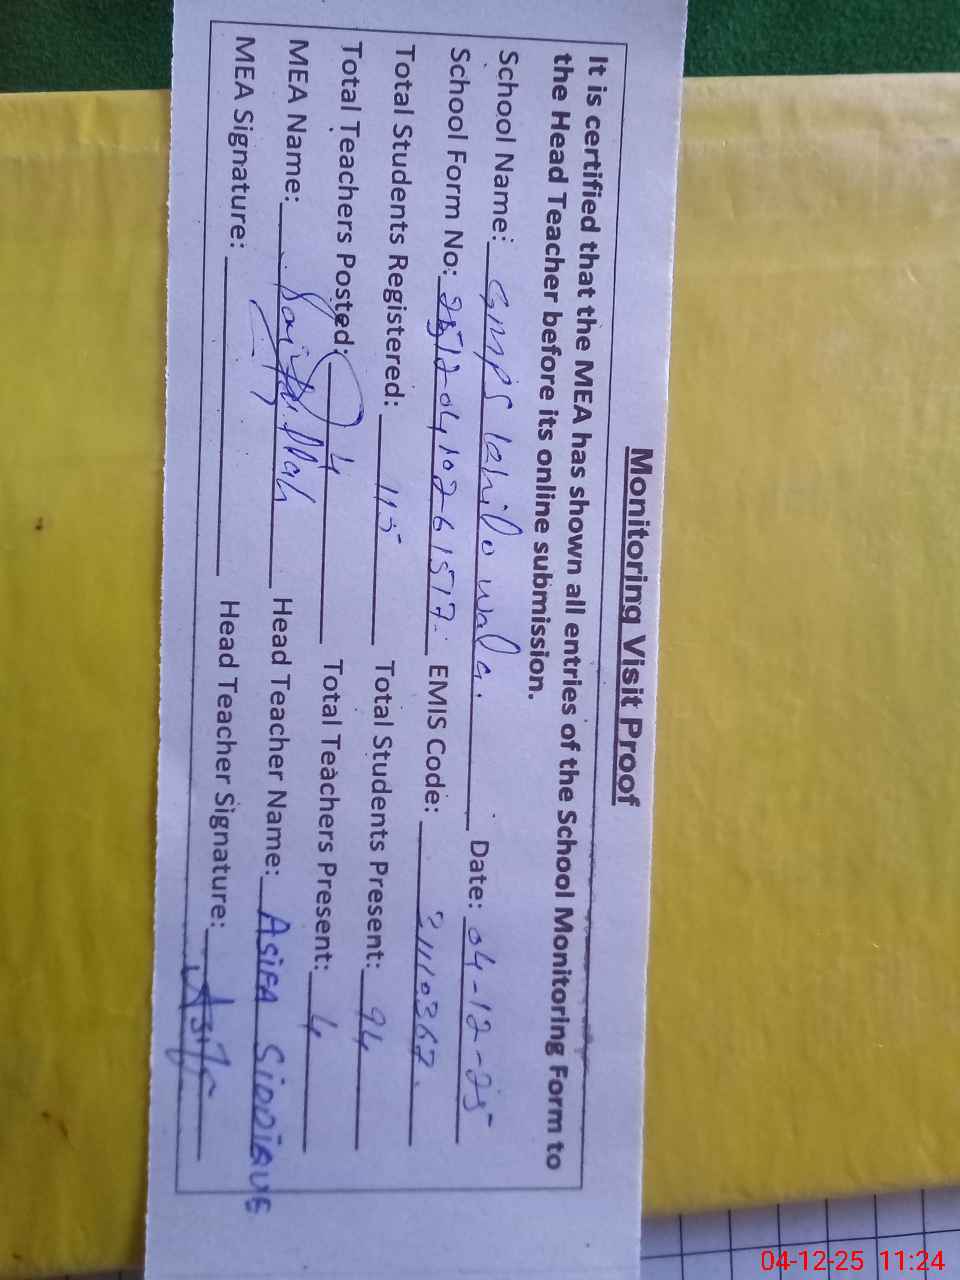 Monitoring Visit Proof
It is certified that the MEA has shown all entries of the School Monitoring Form to
the Head Teacher before its online submission.
School Name: GMPS Date: 04-12-25
School Form No: 25120410261517 EMIS Code: 31110367
Total Students Registered: 115 Total Students Present: 94
Total Teachers Posted: 4 Total Teachers Present: 4
MEA Name: Head Teacher Name: ASIFA SIDDIQUE
MEA Signature: Head Teacher Signature: Asifa
04-12-25 11:24